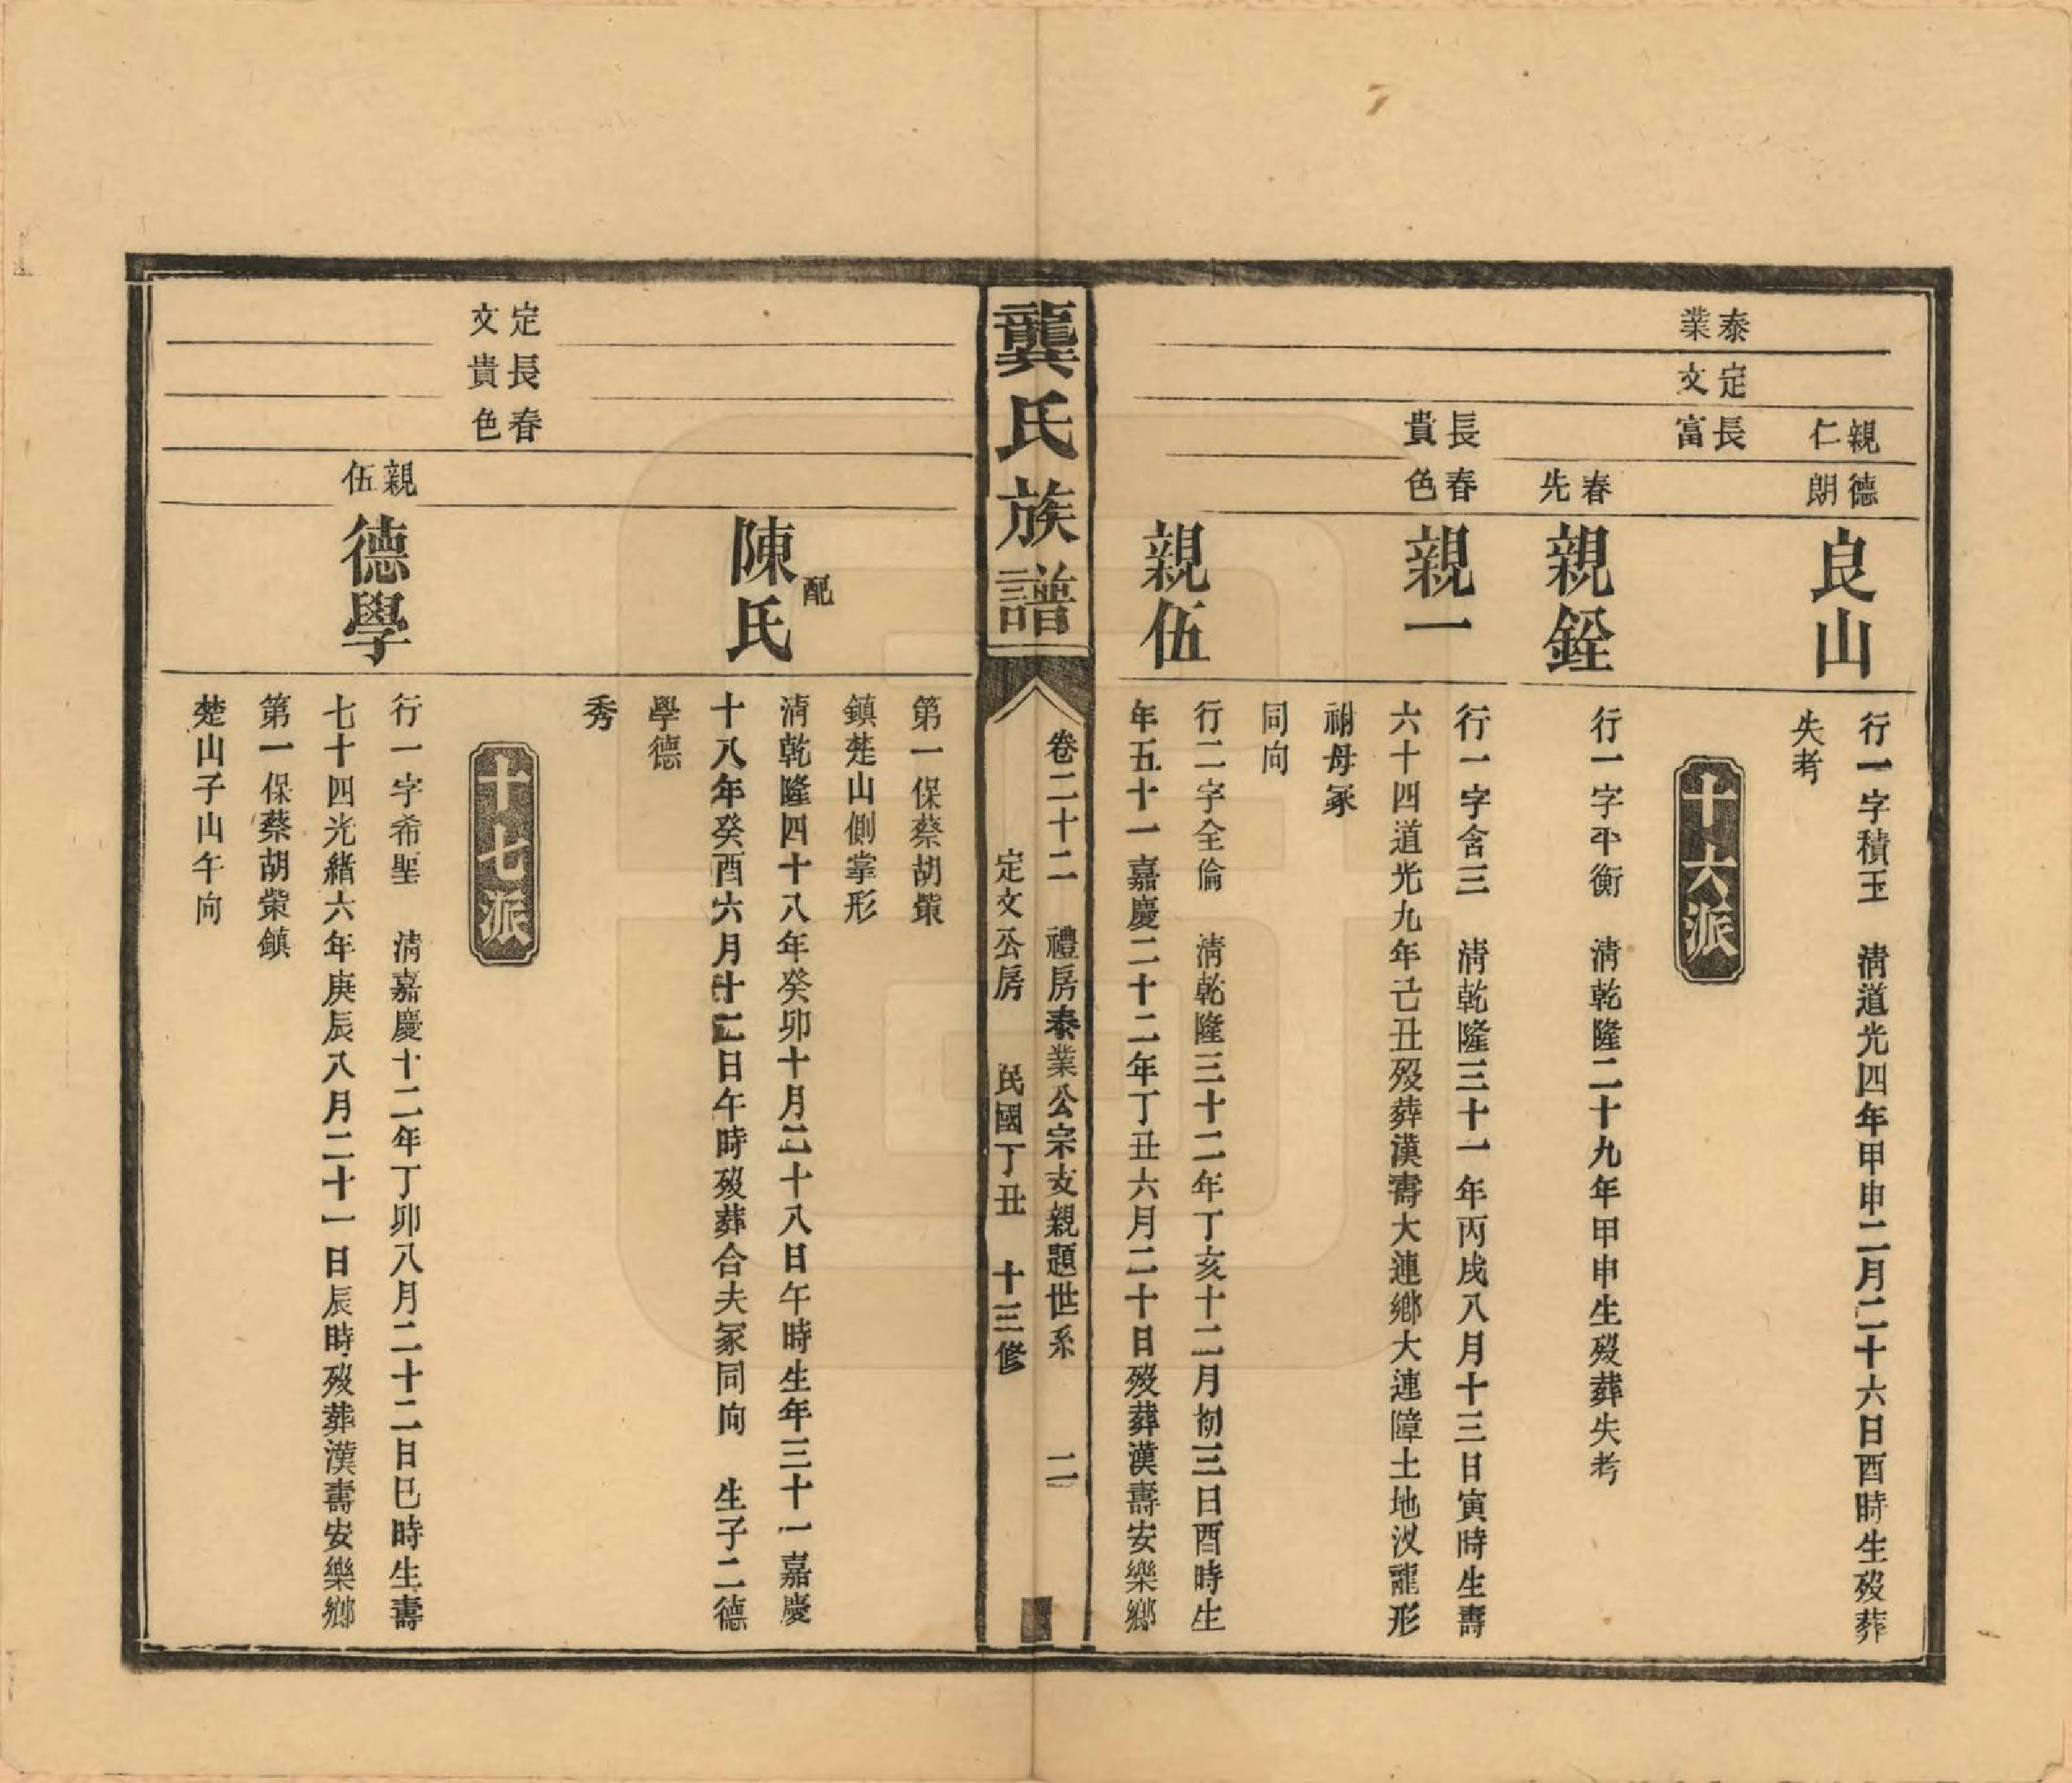 親仁
德朗
良山
行一字積玉　清道光四年甲申二月二十六日酉時生歿葬
失考
泰業
定文
長富
十六派
春先
親銓
行一字平衡　清乾隆二十九年甲申生歿葬失考
長貴
春色
親一
行一字含三　清乾隆三十一年丙戌八月十三日寅時生壽
六十四道光九年己丑歿葬漢壽大連鄉大連障土地汊龍形
祔母冢
同向
親伍
行二字全倫　清乾隆三十二年丁亥十二月初三日酉時生
年五十一嘉慶二十二年丁丑六月二十日歿葬漢壽安樂鄉
龔氏族譜
卷二十二　禮房泰業公宗支親題世系　二
定文公房　民國丁丑　十三修
第一保蔡胡㭰
鎮楚山側掌形
配
陳氏
清乾隆四十八年癸卯十月二十八日午時生年三十一嘉慶
十八年癸酉六月十二日午時歿葬合夫冢同向　生子二德
學德
秀
定文
長貴
春色
十七派
親伍
德學
行一字希聖　清嘉慶十二年丁卯八月二十二日巳時生壽
七十四光緒六年庚辰八月二十一日辰時歿葬漢壽安樂鄉
第一保蔡胡㭰鎮
楚山子山午向